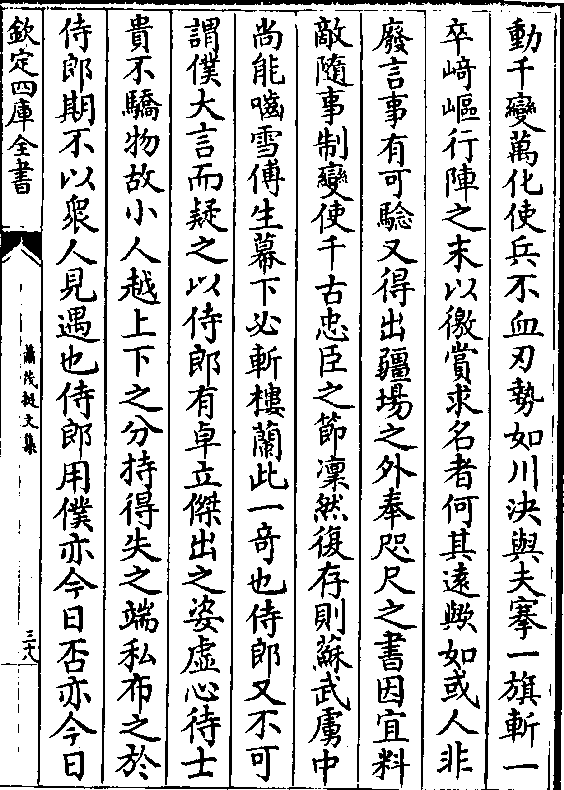 動千變萬化使兵不血刃勢如川決與夫搴一旗斬一
卒﨑嶇行陣之末以徼賞求名者何其遠歟如或人非
廢言事有可驗又得出疆埸之外奉咫尺之書因宜料
敵隨事制變使千古忠臣之節凜然復存則蘇武虜中
尚能嚙雪傅生幕下必斬樓蘭此一奇也侍郎又不可
謂僕大言而疑之以侍郎有卓立傑出之姿虛心待士
貴不驕物故小人越上下之分持得失之端私布之於
侍郎期不以衆人見遇也侍郎用僕亦今日否亦今日
欽定四庫全書
蕭茂挺文集
三十八